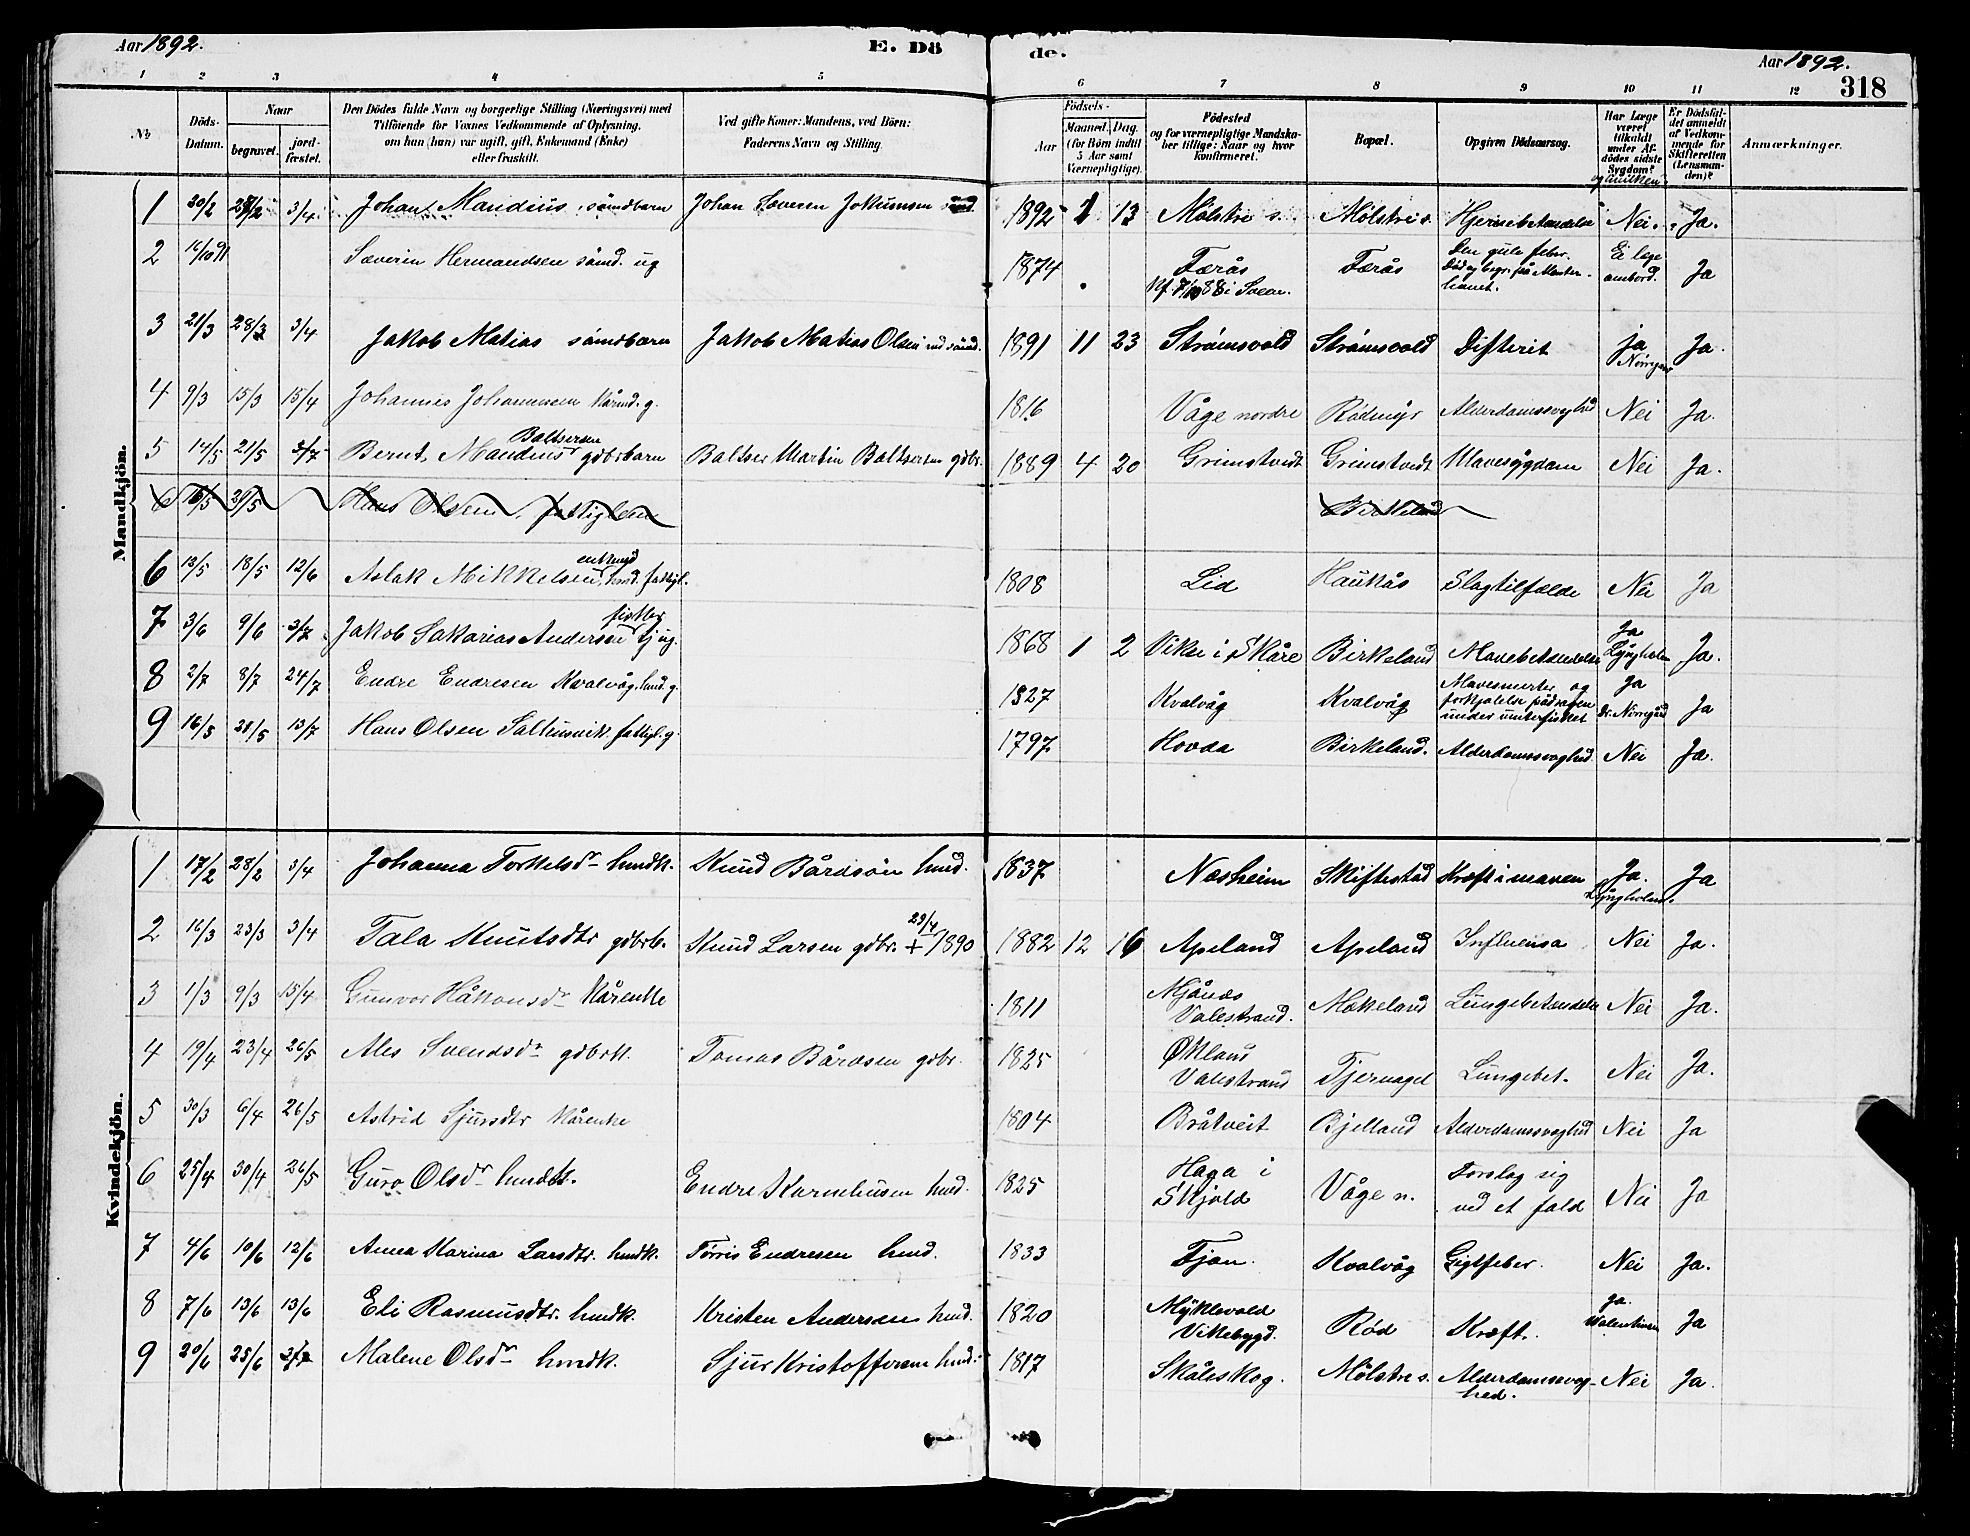 Aar 1892.
E. Dö
de.
Aar 1892.
318
1 2 3 4 5 6 7 8 9 10 11 12
No
Döds-Datum.
Naar
begravet.
jord-fæstet.
Den Dödes fulde Navn og borgerlige Stilling (Næringsvei) med
Tilföiende for Voxnes Vedkommende af Oplysning,
om han (hun) var ugift, gift, Enkemand (Enke)
eller fraskilt.
Ved gifte Koner: Mandens, ved Börn:
Faderens Navn og Stilling.
Födsels-
Aar
Maaned. Dag.
(for Börn indtil
5 Aar samt
Værnepligtige).
Födested
og for værnepligtige Mandska-
ber tillige: Naar og hvor
konfirmeret.
Bopæl.
Opgiven Dödsaarsag.
Har Læge
været
tilkaldt
under Af-
dödes sidste
Sygdom?
og hvilken
Er Dödsfal-
det anmeldt
af Vedkom-
mende for
Skifteretten
(Lensman-
den)?
Anmærkninger.
Mandkjön.
1 20/2 28/2 3/4 Johan Mandius, sømdbarn Johan Søveren Jokumsen 1892 1 13 Mølstre s. Mølstre s. Hjernebetændelse Nei. Ja.
2 16/10 91 Søverin Hermandsen sømd. ug 1874 Færås Kf. 7/10 88 i Sveen. Færås Den gule feber. Død og begr. på Ei læge ombord. Ja
3 21/3 28/3 3/4 Jakob Matias sømdbarn Jakob Matias Olsen sømd. 1891 11 23 Strømsvold Strømsvold Difterit ja Nørregård Ja.
4 9/3 15/3 15/4 Johannes Johannesen kårmd. g. 1816 Våge nordre Rødmyr Alderdomssvaghed Nei Ja.
5 14/5 21/5 3/7 Bernt Mandius Baltsersen gdbrbarn Baltser Martin Baltsersen gdbr. 1889 4 20 Grimstvedt Grimstvedt Mavesygdom Nei Ja.
6 16/5 21/5 Hans Olsen, fattiglem Birkeland
6 13/5 18/5 12/6 Aslak Mikkelsen, enkemd hmd. fattigl. 1808 Lid Haukås Slagtilfælde Nei Ja
7 3/6 9/6 3/7 Jakob Sakarias Andersen fisker ug. 1868 1 2 Vikse i Skåre Birkeland Mavebetændelse Ja Lyngholm Ja.
8 2/7 8/7 24/7 Endre Endresen Kvalvåg, hmd. g. 1827 Kvalvåg Kvalvåg Mavesmerter og forkjølelse pådragen under vinterfisket Ja Dr. Nørregård Ja
9 16/5 21/5 13/7 Hans Olsen Saltunsvik. fattigl. g. 1797 Hovda Birkeland. Alderdomssvaghed Nei Ja.
Kvindekjön.
1 17/2 28/2 3/4 Johanna Torkelsdr hmdk. Knud Bårdsøn hmd. 1837 Nesheim Skiftestad Kræft i maven Ja. Lyngholm. Ja
2 16/3 23/3 3/4 Tala Knutsdtr gdbrb. Knud Larsen gdbr. + 29/4 1890 1882 12 16 Apeland Apeland Influensa Nei Ja.
3 1/3 9/3 15/4 Gunvor Håkonsdr kårenke 1811 Mjånes Valestrand. Mækeland Lungebetændelse Nei Ja.
4 19/4 23/4 26/5 Ales Svendsdr gdbrk. Tomas Bårdsen gdbr. 1825 Økland Valestrand Tjernagel Lungebet. Nei Ja.
5 30/3 6/4 26/5 Astrid Sjursdtr kårenke 1804 Bråtveit Bjelland Alderdomssvaghed Nei Ja
6 25/4 30/4 26/5 Guro Olsdr hmdk. Endre Korneliusen hmd. 1825 Haga i Skjold Våge n. Forslog sig ved et fald Nei Ja
7 4/6 10/6 12/6 Anna Karina Larsdtr. hmdk. Tørris Endresen hmd. 1833 Tjon. Kvalvåg Gigtfeber. Nei Ja.
8 7/6 13/6 13/6 Eli Rasmusdtr. hmdk. Kristen Andersen hmd. 1820 Myklevold Vikebygd. Rød Kræft. Ja. Valentinsen Ja
9 20/6 25/6 3/7 Malene Olsdr hmdk. Sjur Kristoffersen hmd. 1817 Skåleskog. Mølstre s. Alderdomssvag-hed. Nei Ja.